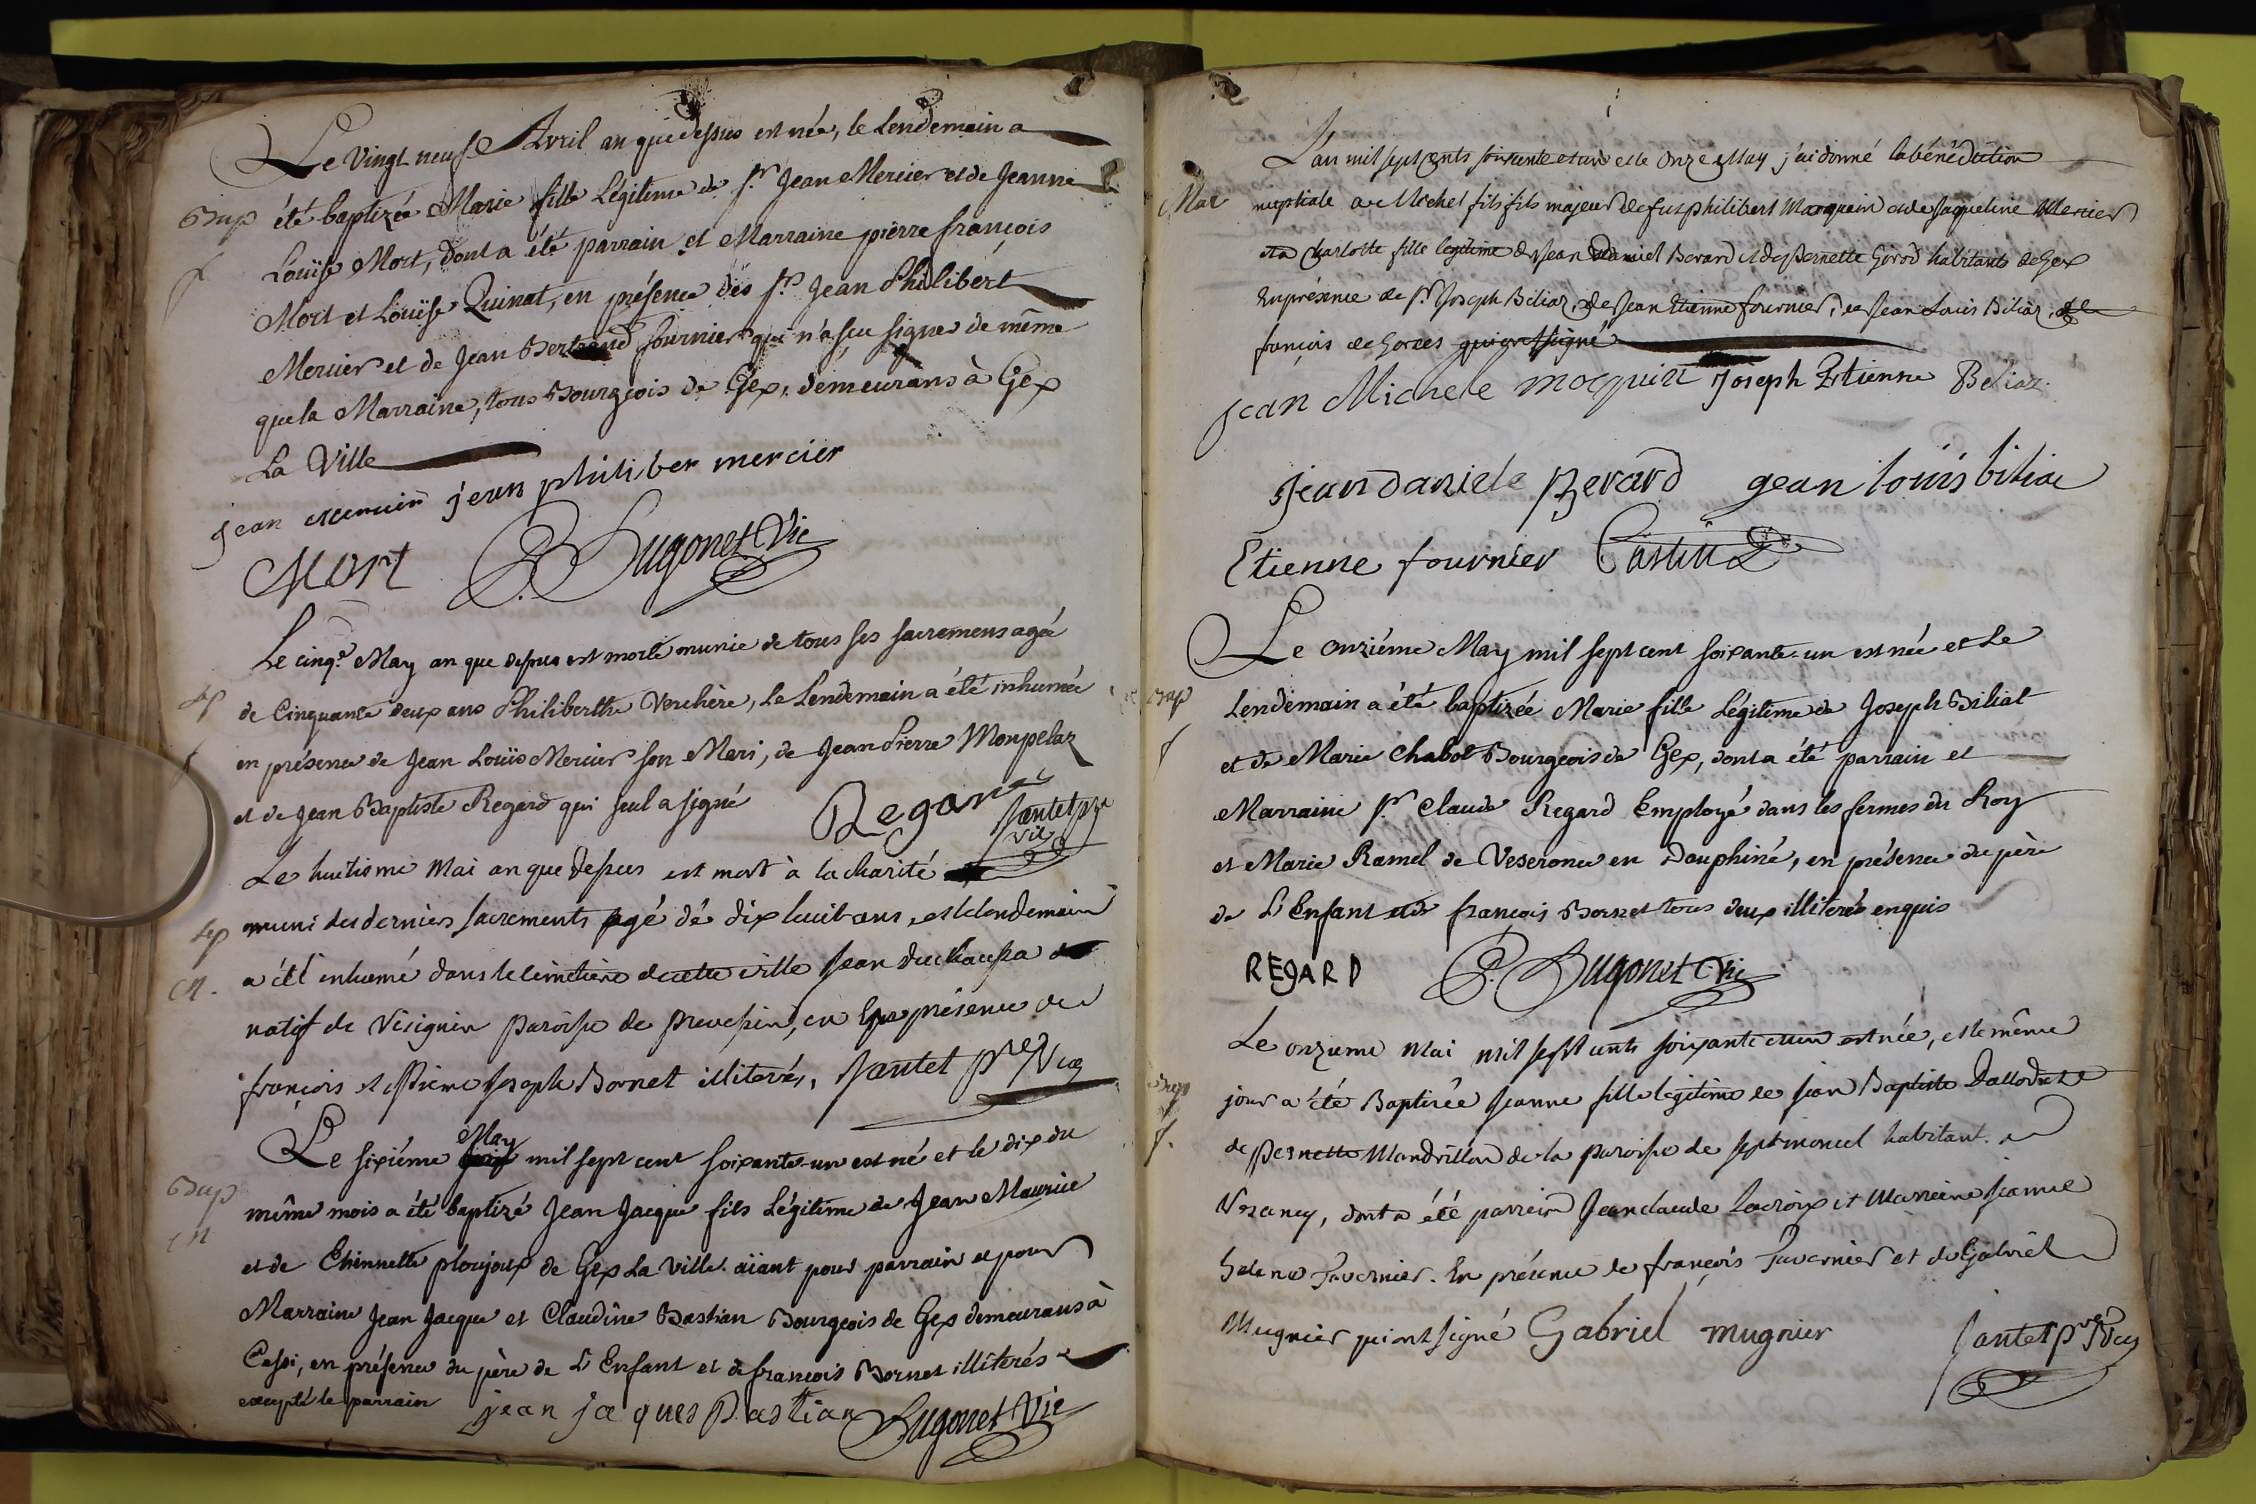 Le Vingt neuf Avril an que dessus est née, le Lendemain a
Bap
été baptizée Marie fille Légitime de Sr. Jean Mercier et de Jeanne
f
Louïse Mort, dont a été parrain et Marraine pierre françois
Mort et Louïse Quinat, en présence des Srs Jean Philibert
Mercier et de Jean Bertrand fournier qui n'a sçu signer de même
que la Marraine, tous Bourgeois de Gex, demeurans à Gex
La Ville
jean mercier jean philiber mercier
Mort P. Hugonet Vic
Le cinqe. May an que dessus est morte munie de tous ses sacremens agée
Sep
de Cinquante deux ans Philiberthe Verchère, Le Lendemain a été inhumée
f
en présence de Jean Louïs Mercier son Mari, de Jean Pierre Monpelaz
et de Jean Baptiste Regard qui seul a signé Regard
Jantet ptre Vic
Le huitieme Mai an que dessus est mort à la charité
Sep
muni des derniers sacrements agé dé dix huit ans, et le lendemain
M.
a été inhumé dans le cimetiere de cette ville Jean
natif de Vésignin paroisse de prevessin, en présence de
françois et Pierre Joseph Bornet illiterés, Jantet ptre Vic
Le sixiéme May mil sept cent soixante-un est né et le dix du
Bap
même mois a été baptizé Jean Jacque fils Légitime de Jean Maurice
M
et de Thinnette ploujoux de Gex La Ville. aïant pour parrain et pour
Marraine Jean Jacque et Claudine Bastian Bourgeois de Gex demeurans à
Cessi, en présence du père de L'Enfant et de francois Bornet illitérés
excepté le parrain jean jaques Bastian Hugonet Vic
L'an mil sept cents soixante et un et le Onze May j'ai donné la bénédiction
Mar
nuptiale a Michel fils majeur de fut philibert Moquin et de Jaqueline Mercier
et a Charlotte fille legitime de Jean Daniel Berard et de Pernette Girod habitants de Gex
En présence de Sr. Joseph Béliaz, de Jean Etienne fournier, de Jean Louis Biliaz, de
françois de Gorces qui ont signé
jean Michele moquin Joseph Etienne Beliaz.
Jean daniele Berard jean louis biliac
Etienne fournier
Le Onziéme May mil sept cent soixante-un est née et Le
Bap
Lendemain a été baptizée Marie fille Légitime de Joseph Biliat
f
et de Marie Chabot Bourgeois de Gex, dont a été parrain et
Marraine Sr. Claude Regard Employé dans les fermes du Roy
et Marie Ramel de Veserone en Dauphiné, en présence du père
de L'Enfant et de françois Bornet tous deux illiterés enquis
REGARD P. Hugonet Vic
Le onzieme Mai mil sept cents soixante et un est née, et le même
Bap
jour a été Baptisée Jeanne fille légitime de Jean Baptiste Dallod et
f.
de Pernette Mandrillon de la paroisse de septmoncel habitant a
Vesancy, dont a été parrein Jean claude Lacroix et Marreine Jeanne
helene Tavernier. En présence de françois Tavernier et de Gabriel
Mugnier qui ont signé Gabriel mugnier Jantet ptre Vic